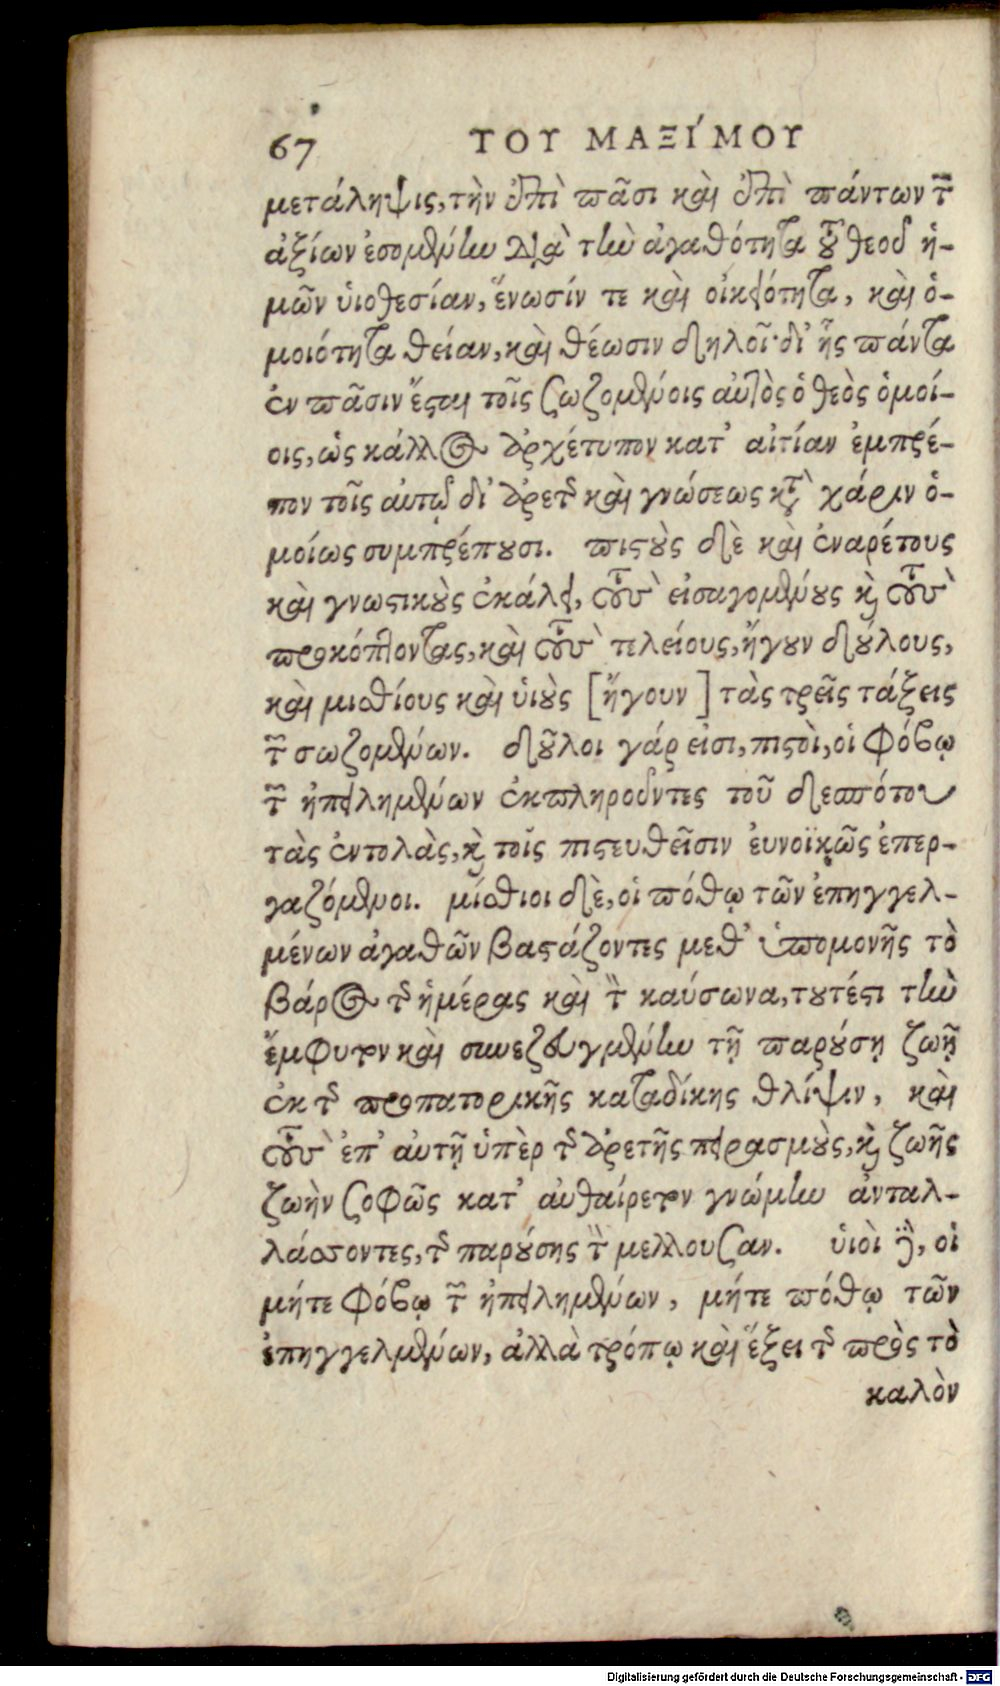 67 ΤΟΥ ΜΑΞΊΜΟΥ
μετάληψις, τὴν ἐπὶ πᾶσι καὶ ἐπὶ πάντων τῶν
ἀξίων ἐσομένην διὰ τὴν ἀγαθότητα τοῦ θεοῦ ἡ-
μῶν υἱοθεσίαν, ἕνωσίν τε καὶ οἰκειότητα, καὶ ὁ-
μοιότητα θείαν, καὶ θέωσιν δηλοῖ· δι’ ἧς πάντα
ἐν πᾶσιν ἔσται τοῖς σωζομένοις αὐτὸς ὁ θεὸς ὁμοί-
οις, ὡς κάλλος ἀρχέτυπον κατ’ αἰτίαν ἐμπρέ-
πον τοῖς αὐτῷ δι’ ἀρετῆς καὶ γνώσεως κατὰ χάριν ὁ-
μοίως συμπρέπουσι. πιστοὺς δὲ καὶ ἐναρέτους
καὶ γνωστικοὺς ἐκάλει, τοὺς εἰσαγομένους καὶ τοὺς
προκόπτοντας, καὶ τοὺς τελείους, ἤγουν δούλους,
καὶ μισθίους καὶ υἱοὺς [ἤγουν] τὰς τρεῖς τάξεις
τῶν σωζομένων. δοῦλοι γάρ εἰσι, πιστοὶ, οἱ φόβῳ
τῶν ἠπειλημένων ἐκπληροῦντες τοῦ δεσπότου
τὰς ἐντολὰς, καὶ τοῖς πιστευθεῖσιν εὐνοϊκῶς ἐπερ-
γαζόμενοι. μίσθιοι δὲ, οἱ πόθῳ τῶν ἐπηγγελ-
μένων ἀγαθῶν βαστάζοντες μεθ’ ὑπομονῆς τὸ
βάρος τῆς ἡμέρας καὶ τὸν καύσωνα, τουτέστι τὴν
ἔμφυτον καὶ συνεζευγμένην τῇ παρούσῃ ζωῇ
ἐκ τῆς προπατορικῆς καταδίκης θλίψιν, καὶ
τοὺς ἐπ’ αὐτῇ ὑπὲρ τῆς ἀρετῆς πειρασμοὺς, καὶ ζωῆς
ζωὴν σοφῶς κατ’ αὐθαίρετον γνώμην ἀνταλ-
λάσσοντες, τῆς παρούσης τὴν μέλλουσαν. υἱοὶ δὲ, οἱ
μήτε φόβῳ τῶν ἠπειλημένων, μήτε πόθῳ τῶν
ἐπηγγελμένων, ἀλλὰ τρόπῳ καὶ ἕξει τῆς πρὸς τὸ
καλὸν
Digitalisierung gefördert durch die Deutsche Forschungsgemeinschaft - DFG